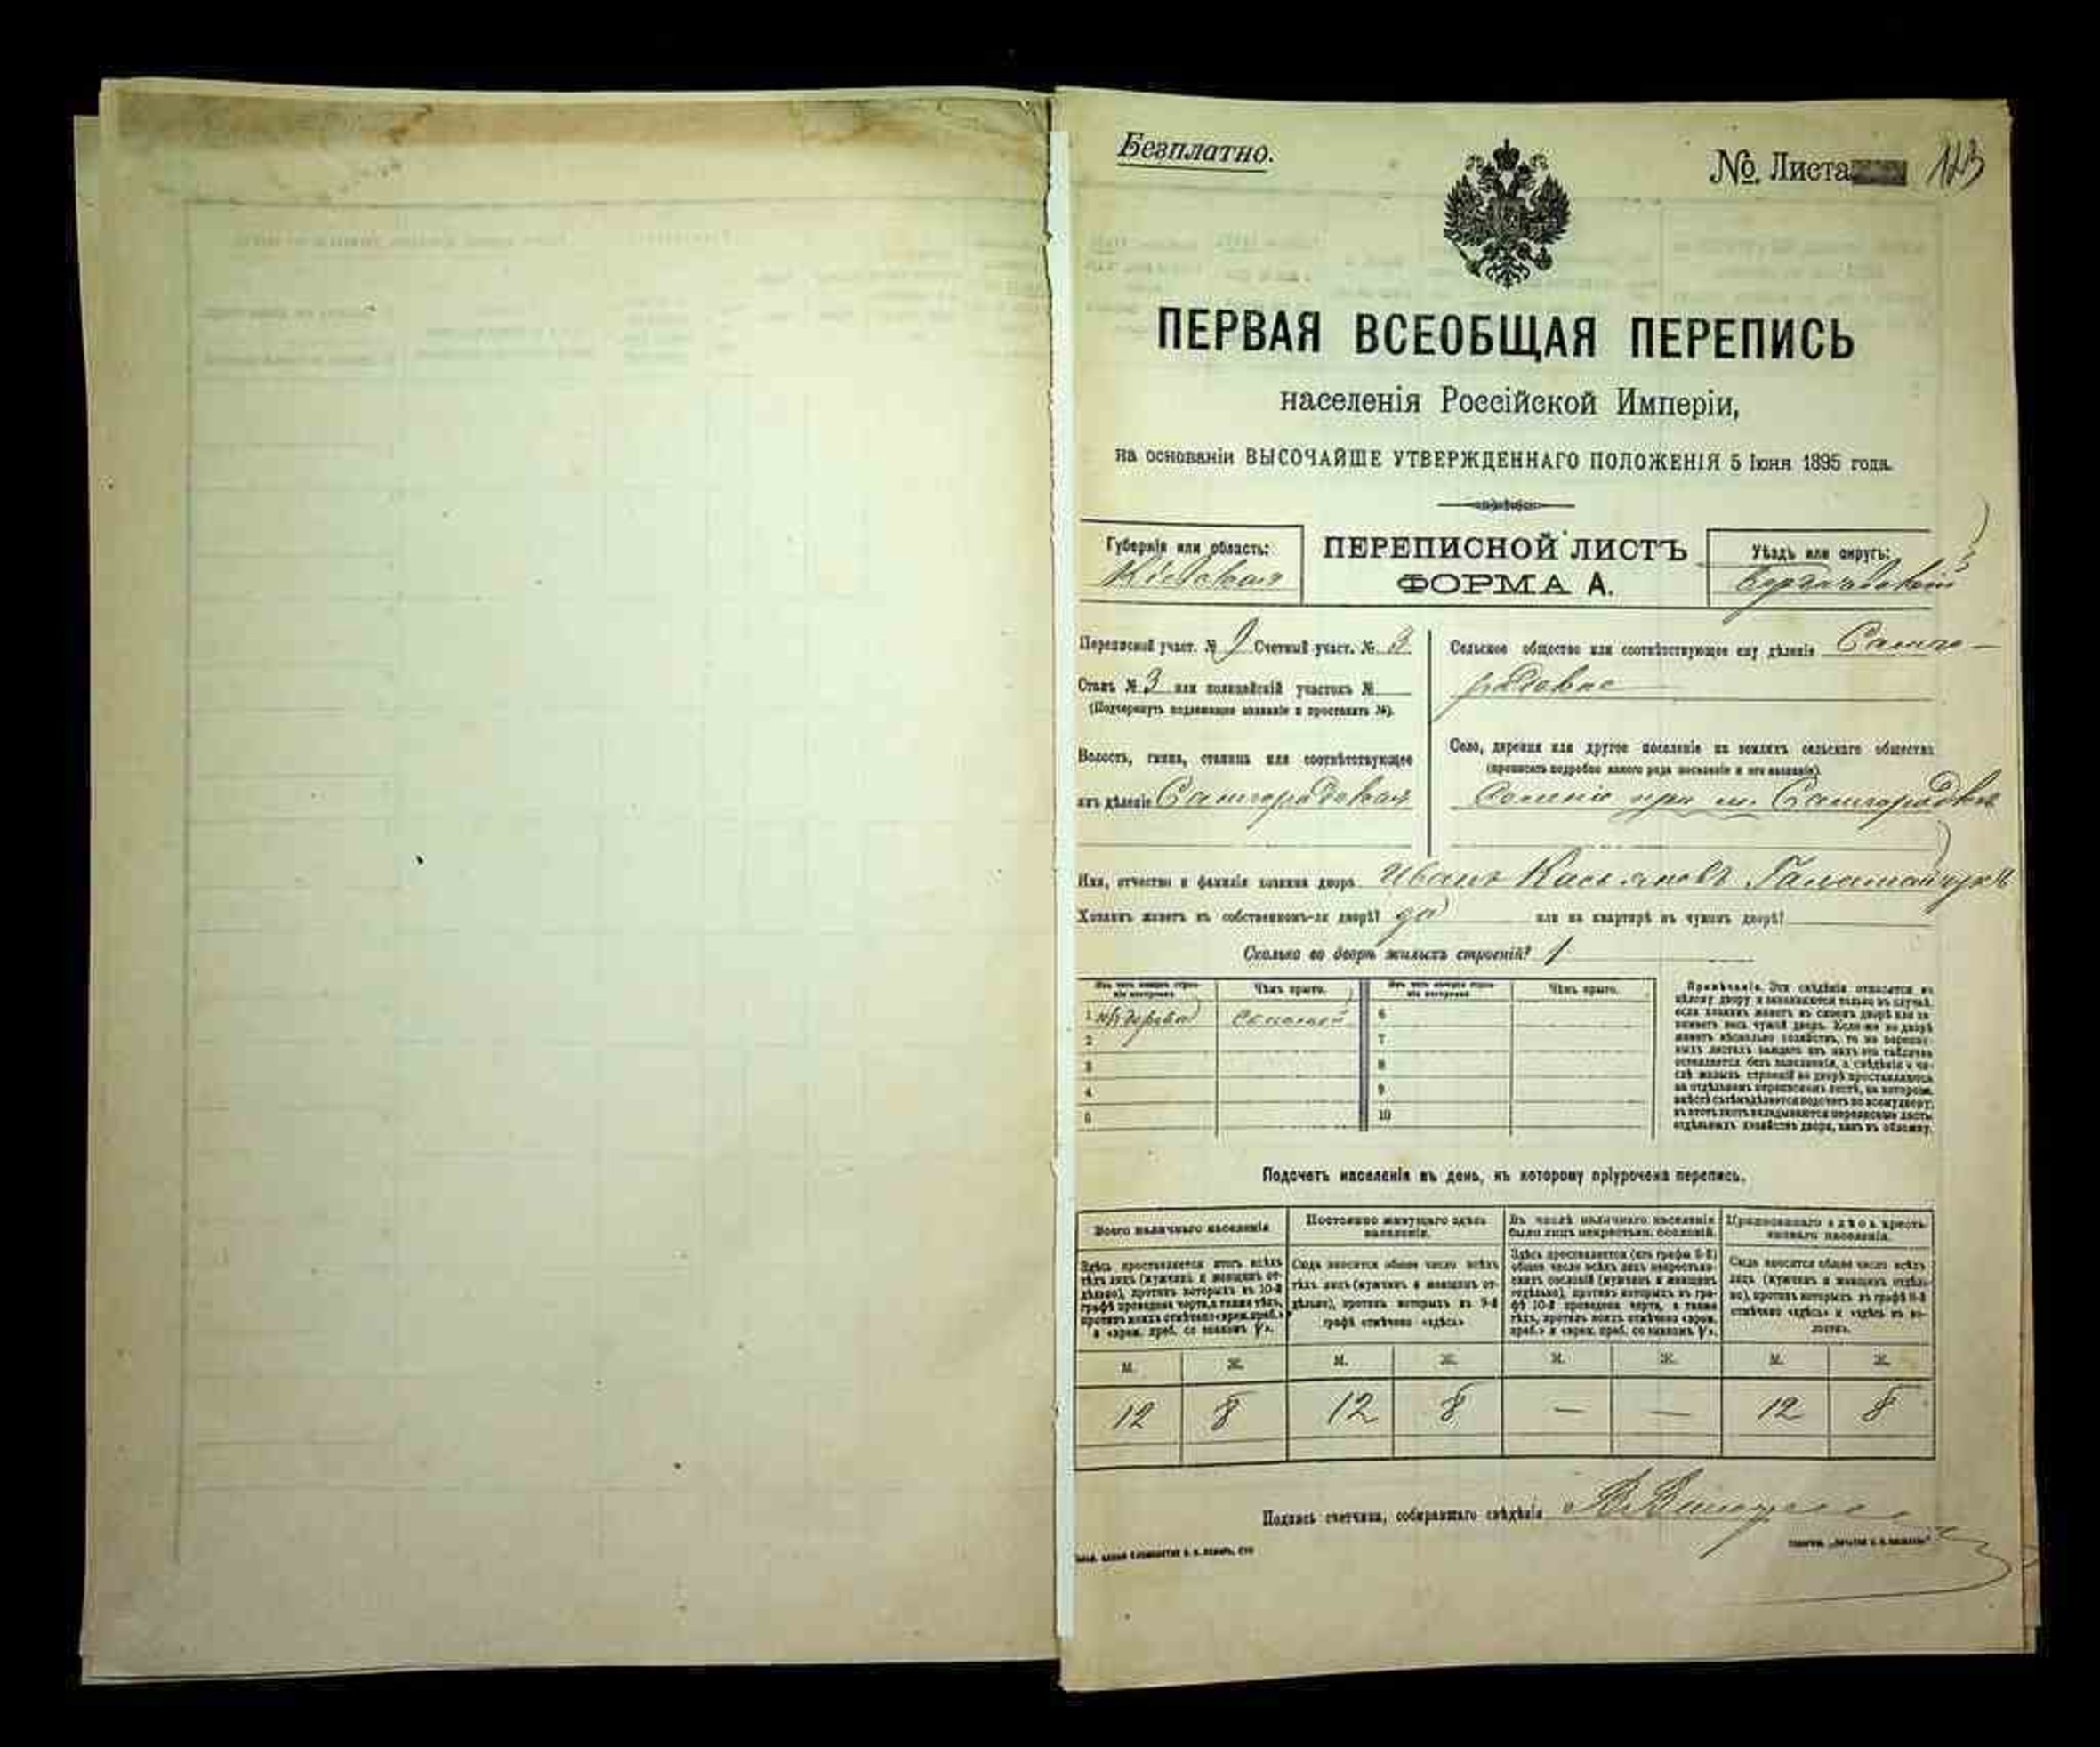 Безплатно.
№ Листа 123
ПЕРВАЯ ВСЕОБЩАЯ ПЕРЕПИСЬ
населенія Россійской Имперіи,
на основаніи ВЫСОЧАЙШЕ УТВЕРЖДЕННАГО ПОЛОЖЕНІЯ 5 Іюня 1895 года.
Губернія или область:
Кіевская
ПЕРЕПИСНОЙ ЛИСТЪ
ФОРМА А.
Уѣздъ или округъ:
Бердичевскій
Переписной участ. № 9 Счетный участ. № 3
Станъ № 3 или полицейскій участокъ №
(Подчеркнуть подлежащее названіе и проставить №).
Волость, гмина, станица или соотвѣтствующее
имъ дѣленіе Самгородская
Сельское общество или соотвѣтствующее ему дѣленіе Самго-
родское
Село, деревня или другое поселеніе на земляхъ сельскаго общества
(прописать подробно какого рода поселеніе и его названіе)
при м. Самгородкѣ
Имя, отчество и фамилія хозяина двора Иванъ Касьяновъ
Хозяинъ живетъ въ собственномъ-ли дворѣ? да или на квартирѣ въ чужомъ дворѣ?
Сколько во дворѣ жилыхъ строеній? 1
Изъ чего жилыя строенія построены. Чѣмъ крыто. Изъ чего жилыя строенія построены. Чѣмъ крыто.
1 изъ дерева соломой 6
2 7
3 8
4 9
5 10
Примѣчаніе. Эти свѣдѣнія относятся къ
цѣлому двору и заполняются только въ случаѣ,
если хозяинъ живетъ въ своемъ дворѣ или за-
нимаетъ весь чужой дворъ. Если-же во дворѣ
живетъ нѣсколько хозяйствъ, то на перепис-
ныхъ листахъ каждаго изъ нихъ эта табличка
оставляется безъ заполненія, а свѣдѣнія о чи-
слѣ жилыхъ строеній во дворѣ проставляются
на отдѣльномъ переписномъ листѣ, на которомъ
вмѣстѣ съ тѣмъ дѣлается подсчетъ по всему двору;
въ этотъ листъ вкладываются переписные листы
отдѣльныхъ хозяйствъ двора, какъ въ обложку.
Подсчетъ населенія въ день, къ которому пріурочена перепись.
Всего наличнаго населенія
Здѣсь проставляется итогъ всѣхъ
тѣхъ лицъ (мужчинъ и женщинъ от-
дѣльно), противъ которыхъ въ 10-й
графѣ проведена черта, а также тѣхъ,
противъ коихъ отмѣчено «врем. преб.»
и «врем. преб. со знакомъ V».
Постоянно живущаго здѣсь
населенія.
Сюда вносится общее число всѣхъ
тѣхъ лицъ (мужчинъ и женщинъ от-
дѣльно), противъ которыхъ въ 9-й
графѣ отмѣчено «здѣсь»
Въ числѣ наличнаго населенія
было лицъ некрестьян. сословій.
Здѣсь проставляется (изъ графы 8-й)
общее число всѣхъ лицъ некрестьян-
скихъ сословій (мужчинъ и женщинъ
отдѣльно), противъ которыхъ въ гра-
фѣ 10-й проведена черта, а также
тѣхъ, противъ коихъ отмѣчено «врем.
преб.» и «врем. преб. со знакомъ V».
Приписаннаго здѣсь кресть-
янскаго населенія.
Сюда вносится общее число всѣхъ
лицъ (мужчинъ и женщинъ отдѣль-
но), противъ которыхъ въ графѣ 8-й
отмѣчено «здѣсь» и «здѣсь въ во-
лости».
М. Ж. М. Ж. М. Ж. М. Ж.
12 8 12 8 — — 12 8
Подпись счетчика, собиравшаго свѣдѣнія